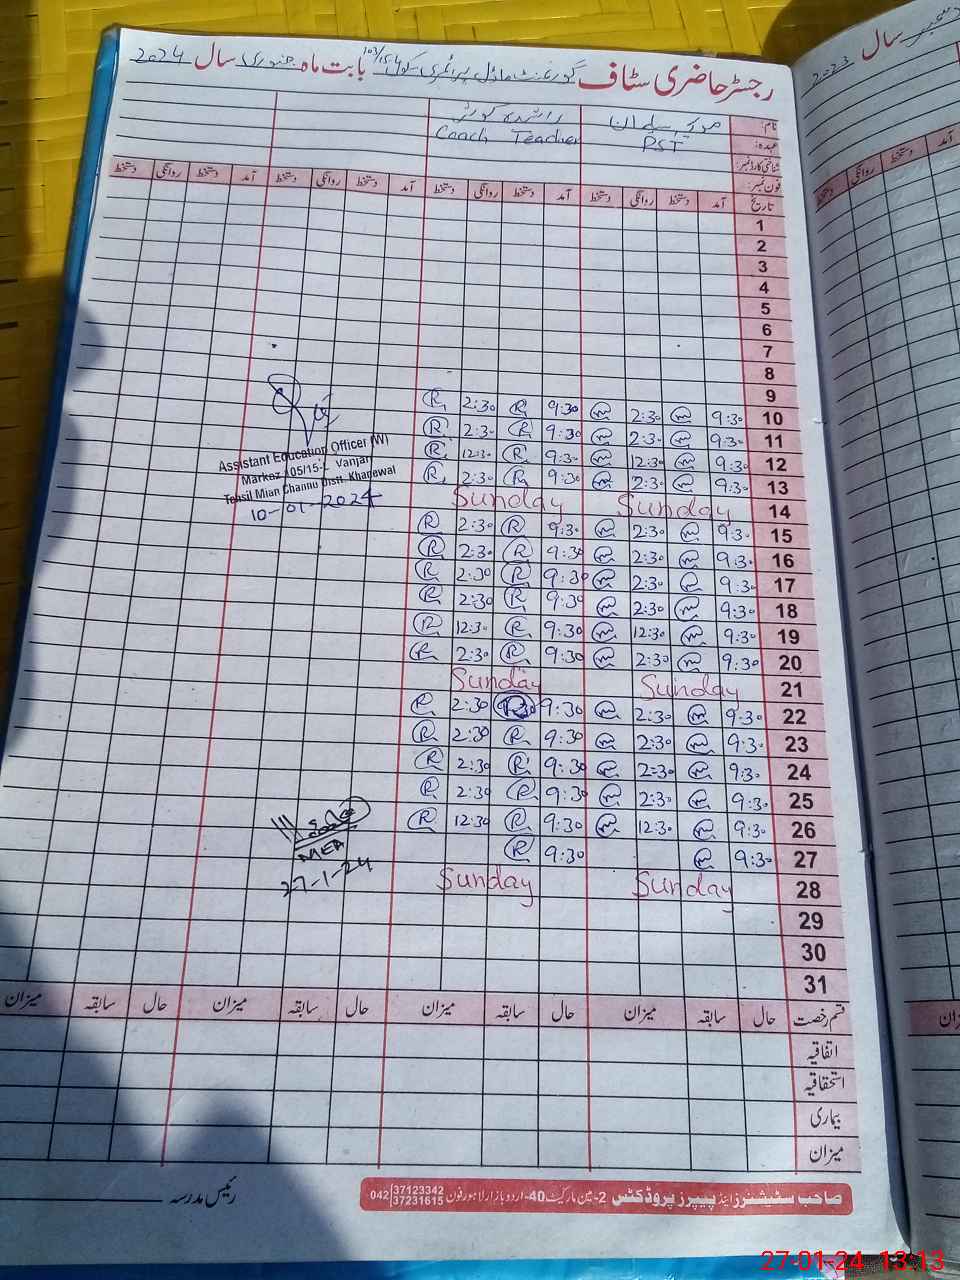 رجسٹر حاضری سٹاف گورنمنٹ ماڈل پرائمری سکول 103/15.L بابت ماہ جنوری سال 2024
نام
راشدہ کوثر
عہدہ: PST Coach Teacher
شناختی کارڈ نمبر:
فون نمبر:
تاریخ آمد دستخط روانگی دستخط آمد دستخط روانگی دستخط آمد دستخط روانگی دستخط آمد دستخط روانگی دستخط
1
2
3
4
5
6
7
8
9
R 2:30 R 9:30 m 2:30 m 9:30 10
R 2:30 R 9:30 m 2:30 m 9:30 11
R 12:30 R 9:30 m 12:30 m 9:30 12
R 2:30 R 9:30 m 2:30 m 9:30 13
Sunday Sunday 14
R 2:30 R 9:30 m 2:30 m 9:30 15
R 2:30 R 9:30 m 2:30 m 9:30 16
R 2:30 R 9:30 m 2:30 m 9:30 17
R 2:30 R 9:30 m 2:30 m 9:30 18
R 12:30 R 9:30 m 12:30 m 9:30 19
R 2:30 R 9:30 m 2:30 m 9:30 20
Sunday Sunday 21
R 2:30 R 9:30 m 2:30 m 9:30 22
R 2:30 R 9:30 m 2:30 m 9:30 23
R 2:30 R 9:30 m 2:30 m 9:30 24
R 2:30 R 9:30 m 2:30 m 9:30 25
R 12:30 R 9:30 m 12:30 m 9:30 26
R 9:30 m 9:30 27
Sunday Sunday 28
29
30
31
Assistant Education Officer (W)
Markaz 105/15-L Vanjari
Tehsil Mian Channu Distt. Khanewal
10-01-2024
MEA
27-1-24
قسم رخصت حال سابقہ میزان حال سابقہ میزان حال سابقہ میزان حال سابقہ میزان
اتفاقیہ
استحقاقیہ
بیماری
میزان
رئیس مدرسہ
صاحب سٹیشنرز اینڈ پیپرز پروڈکٹس 2-مین مارکیٹ 40-اردو بازار لاہور فون 042 37123342 37231615
سال 2023
آمد دستخط روانگی دستخط
میزان
27-01-24 13:13